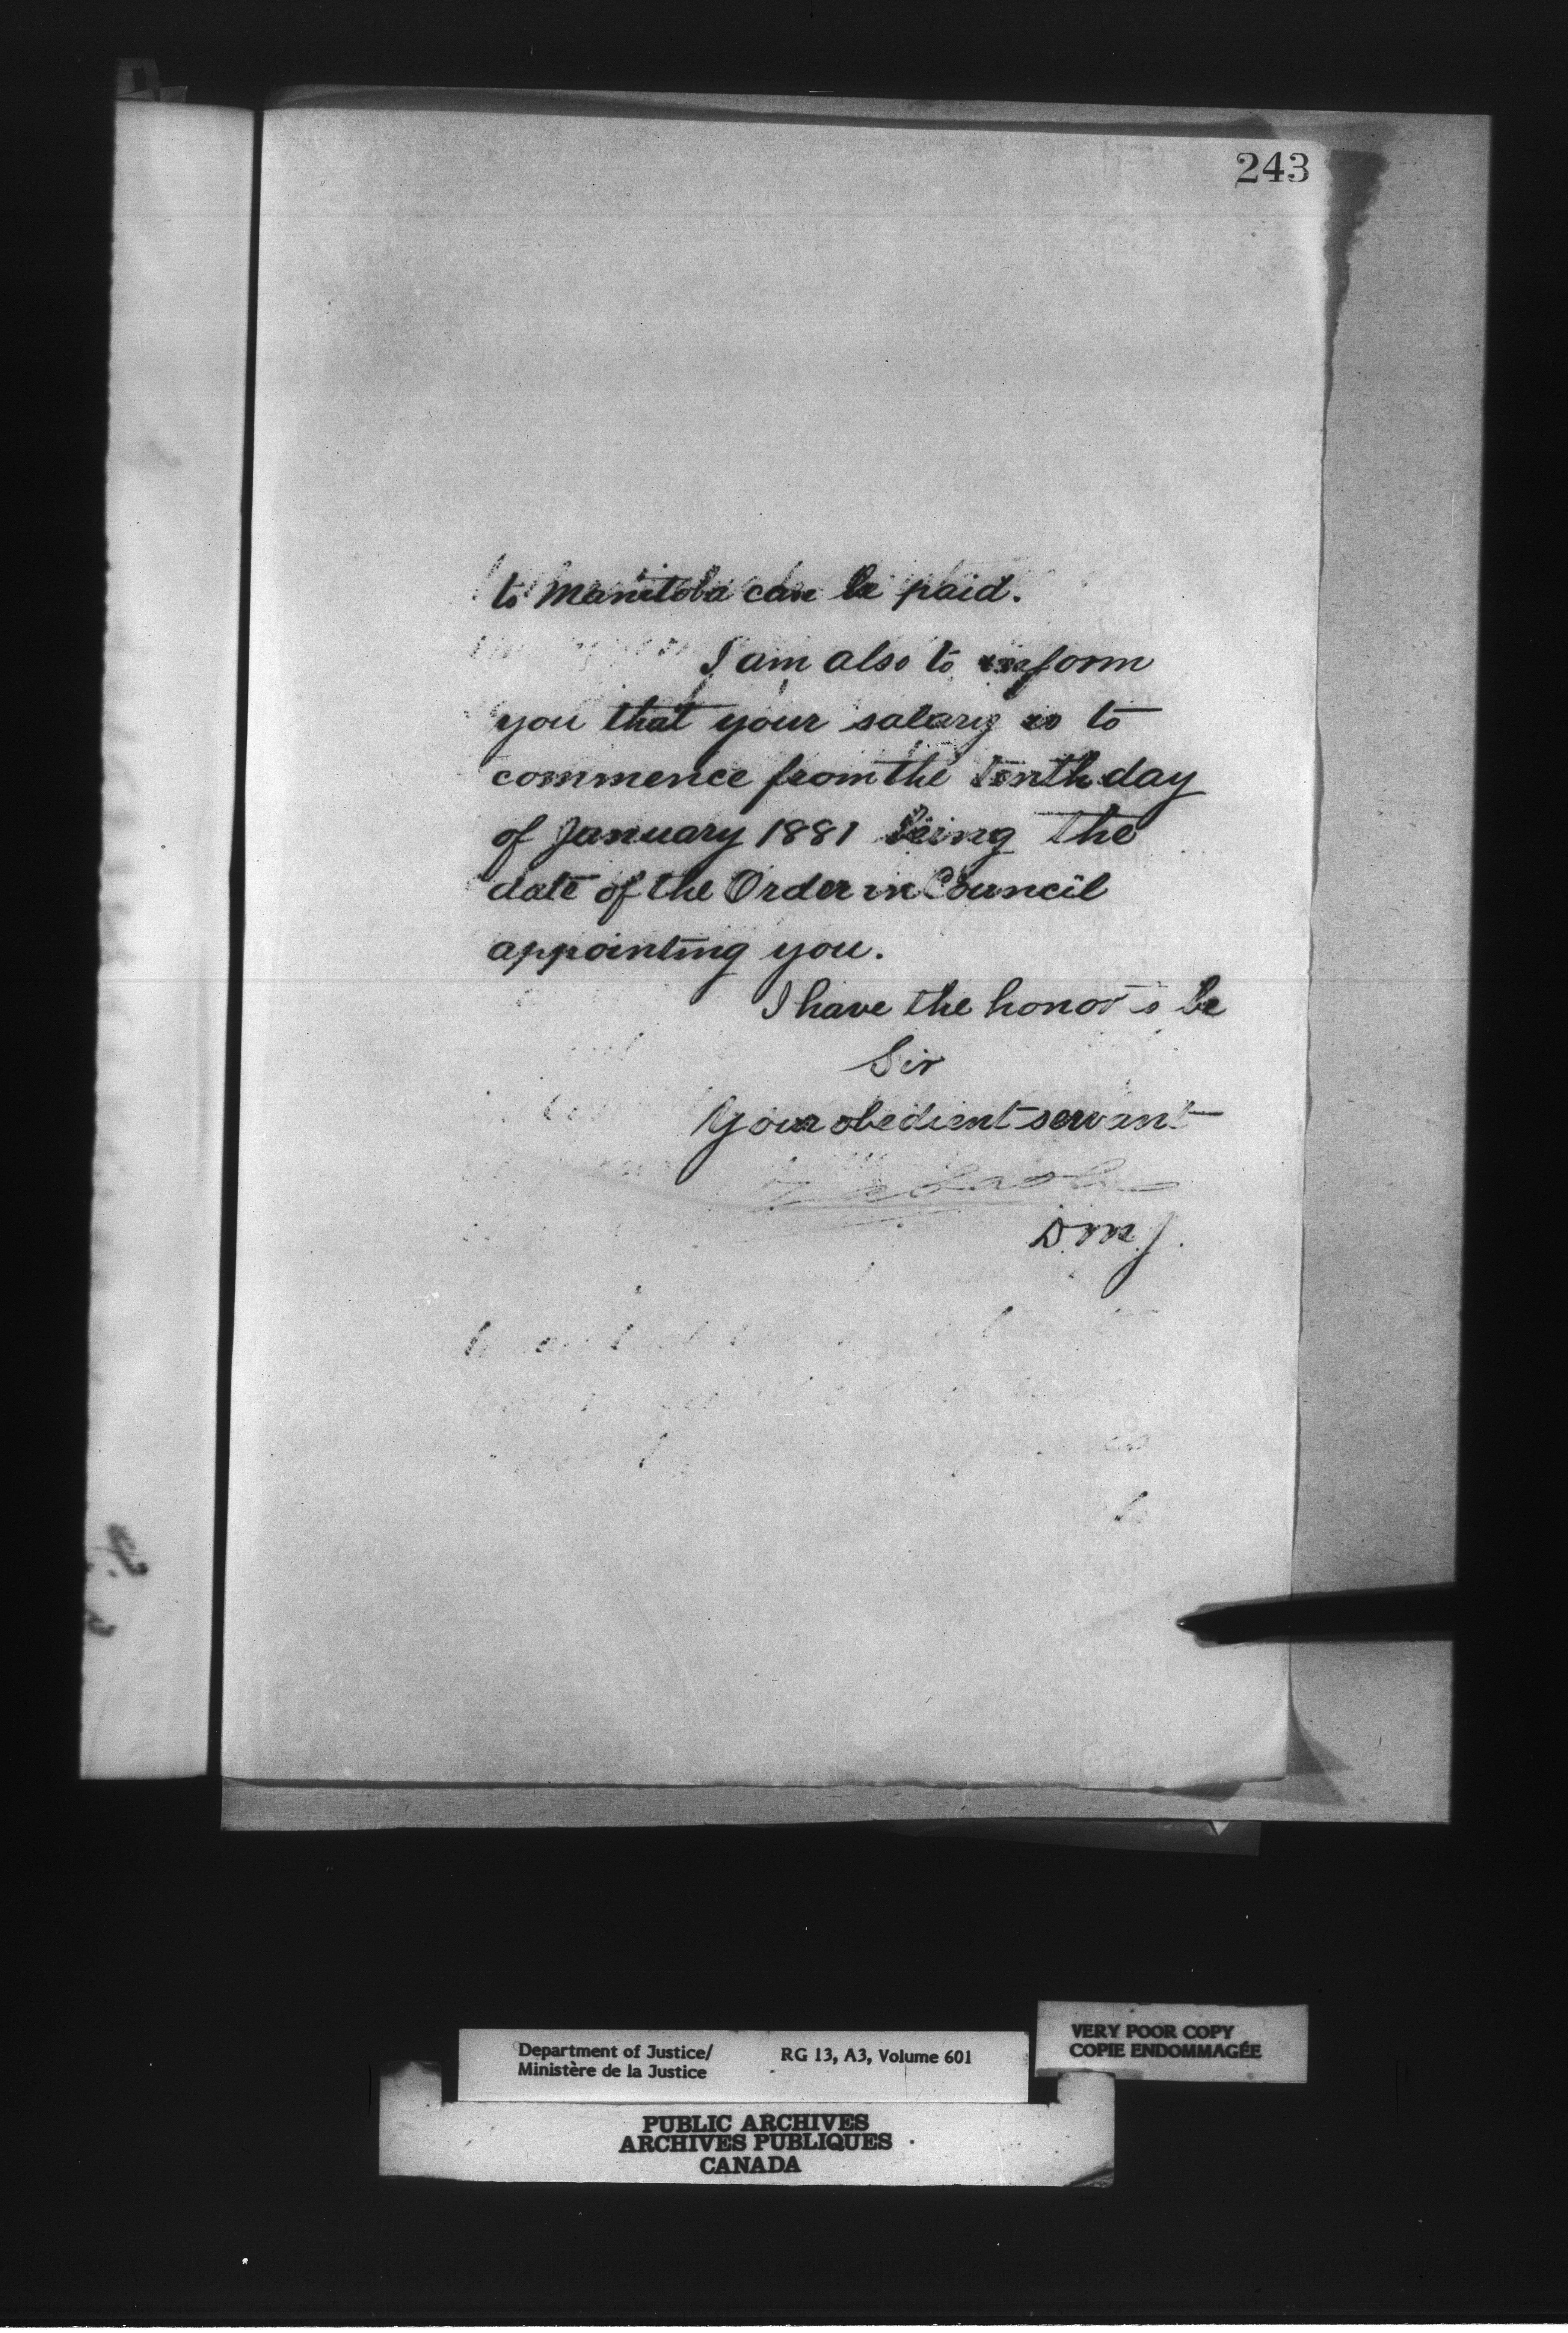 243
to Manitoba can be paid.
I am also to inform
you that your salary is to
commence from the tenth day
of January 1881 being the
date of the Order in Council
appointing you.
I have the honor to be
Sir
Your obedient servant
D.M.J.
VERY POOR COPY
COPIE ENDOMMAGÉE
Department of Justice/ RG 13, A3, Volume 601
Ministère de la Justice
PUBLIC ARCHIVES
ARCHIVES PUBLIQUES
CANADA